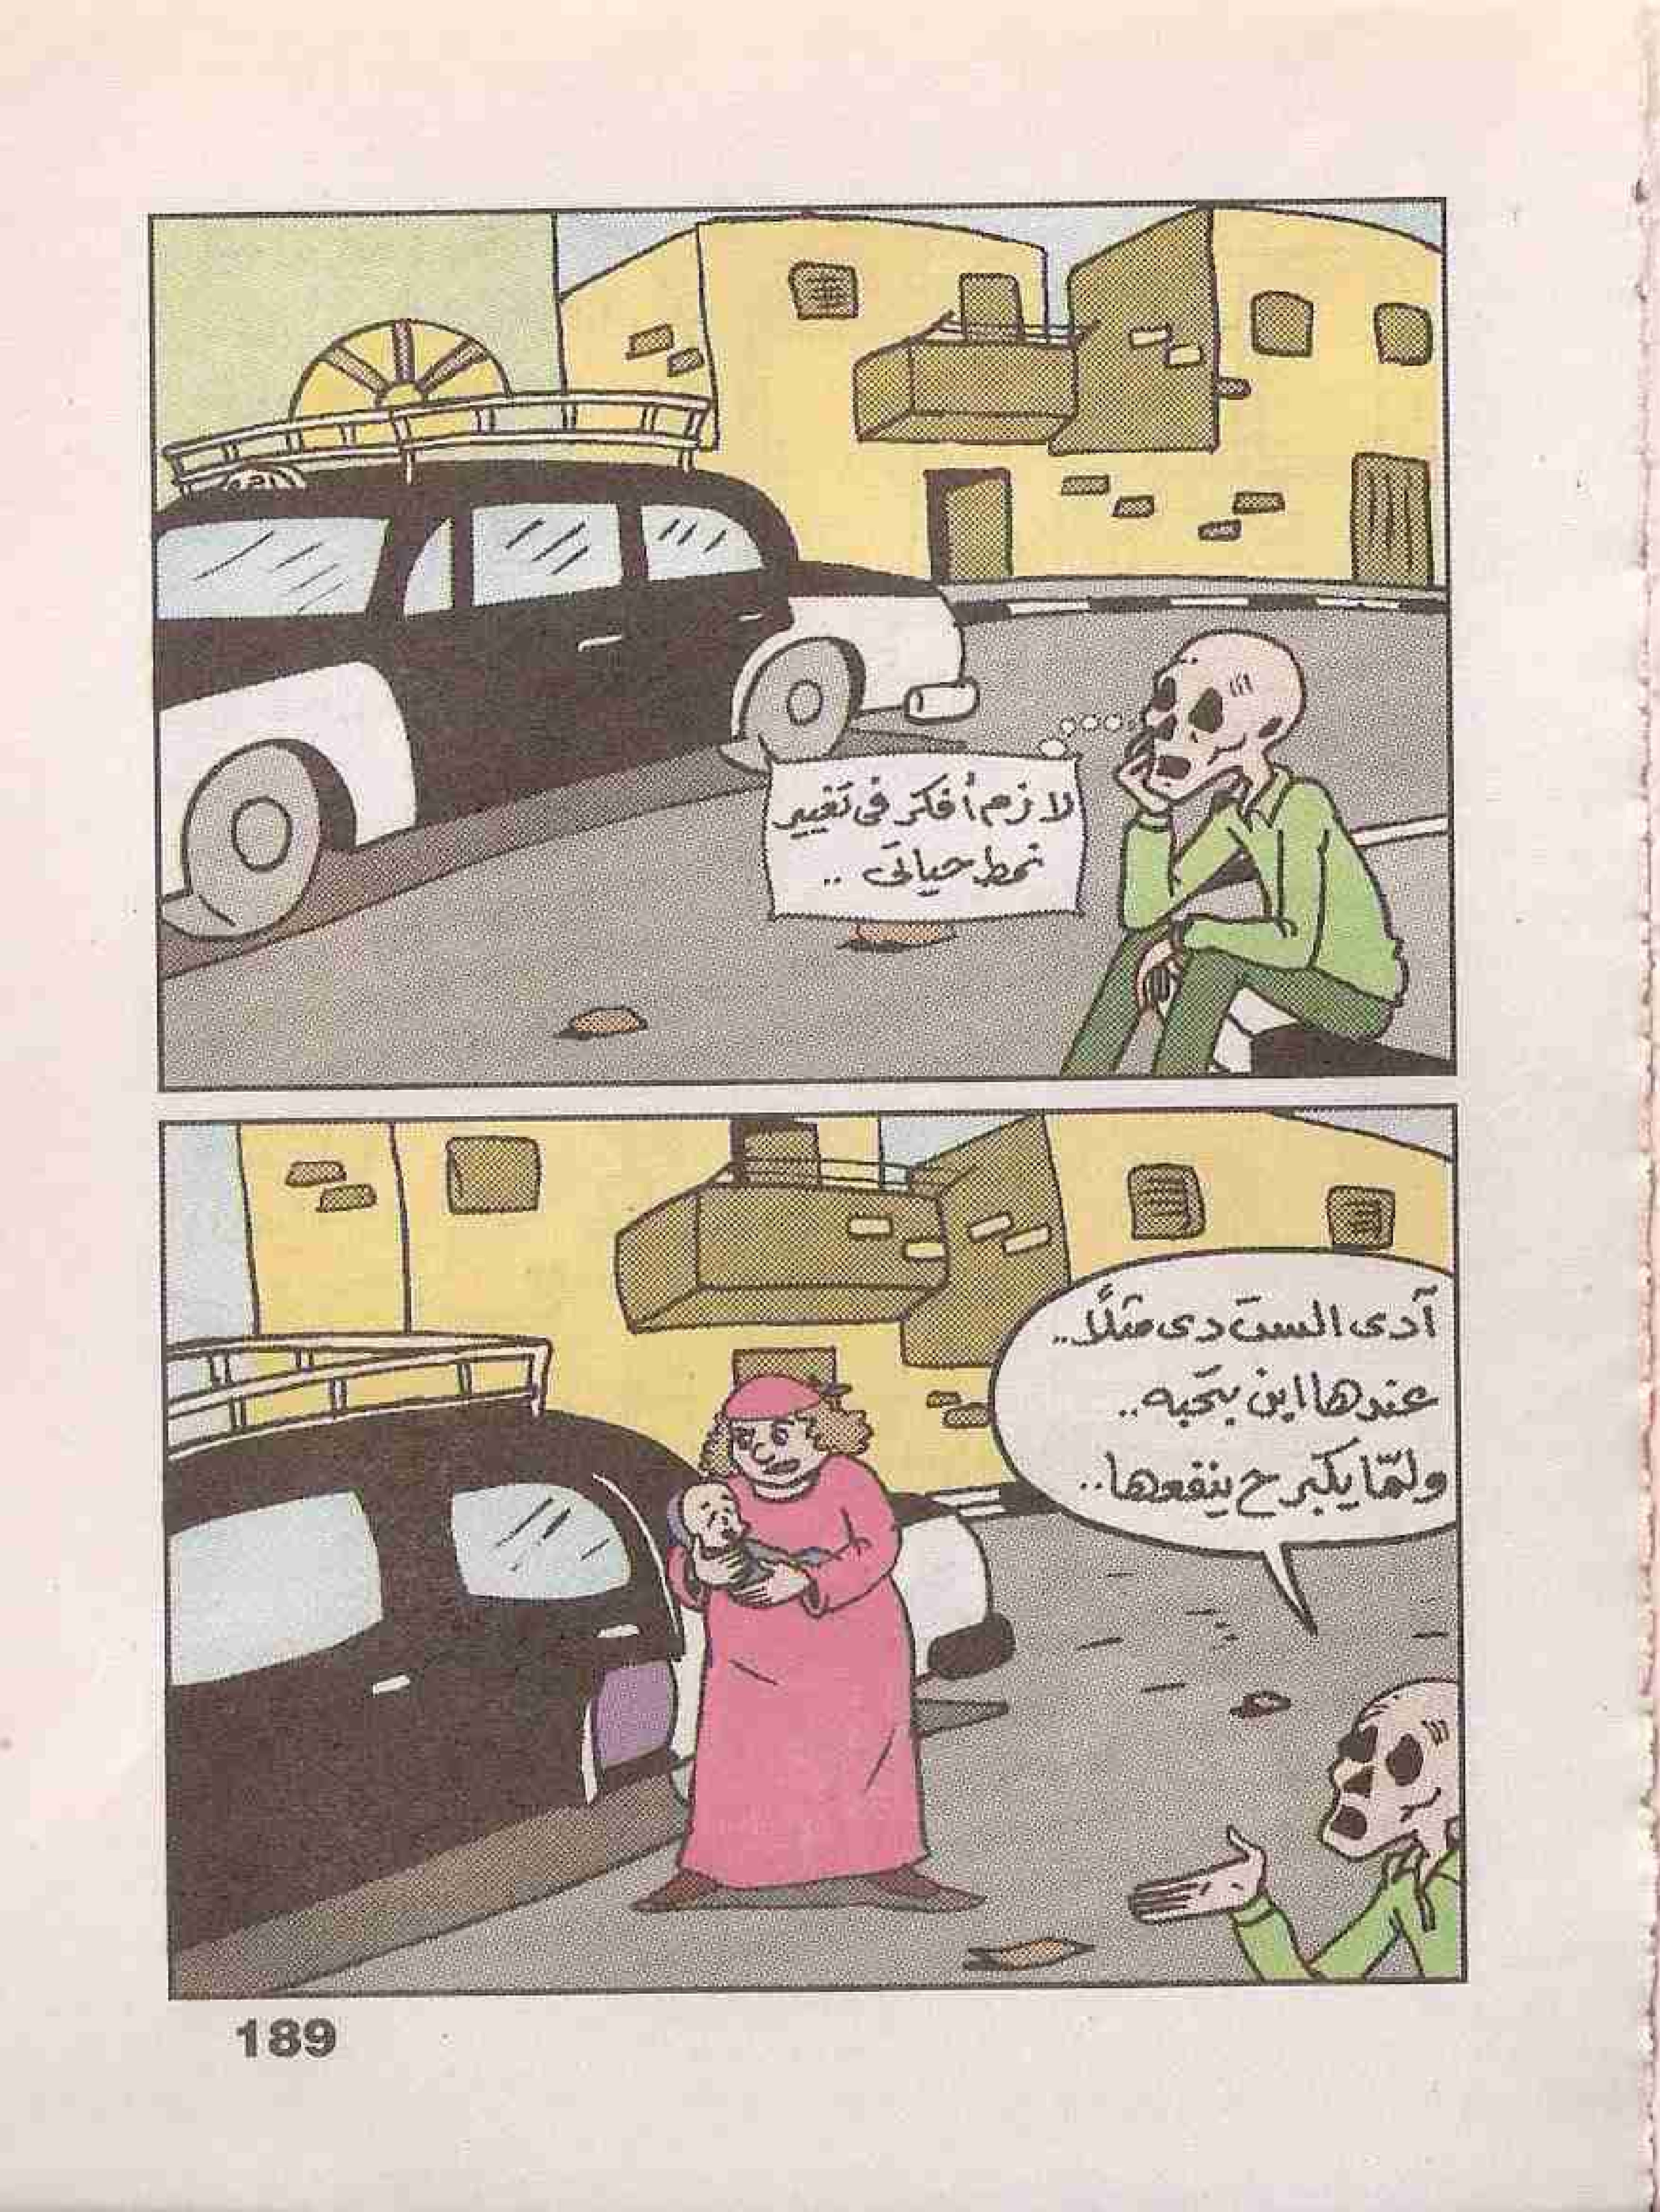 لازم أفكر فى تغيير
نمط حياتى ..
آدى الست دى مثلًا..
عندها ابن بتحبه..
ولمّا يكبر ح ينفعها..
189